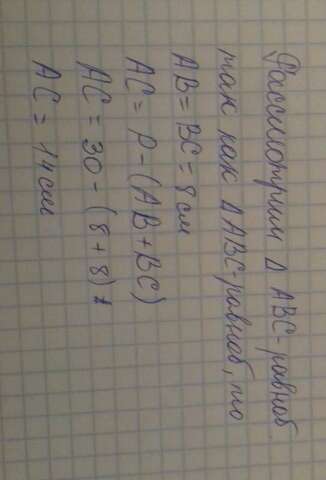 Рассмотрим Δ ABC-равноб.
так как Δ ABC-равноб, то
AB = BC = 8 см
AC = P - (AB + BC)
AC = 30 - (8 + 8)
AC = 14 см